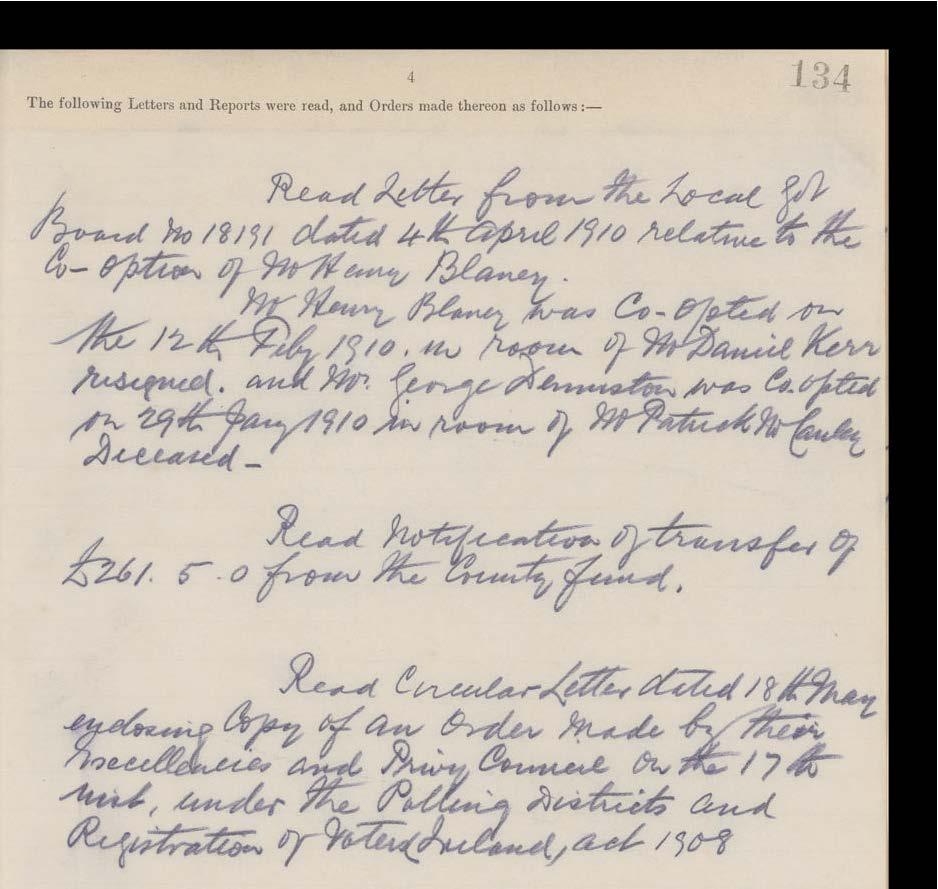 4
134
The following Letters and Reports were read, and Orders made thereon as follows:—
Read Letter from the Local Govt
Board No 18191 dated 4th April 1910 relative to the
Co-option of Mr Henry Blaney.
Mr Henry Blaney was Co-opted on
the 12th Feby 1910. in room of Mr Daniel Kerr
resigned. and Mr. George Denniston was Co.opted
on 29th Jany 1910 in room of Mr Patrick McCauley
Deceased —
Read Notification of transfer of
£261. 5. 0 from the County fund.
Read Circular Letter dated 18th May
enclosing Copy of an Order made by their
Excellencies and Privy Council on the 17th
inst, under the Polling Districts and
Registration of Voters (Ireland) act 1908